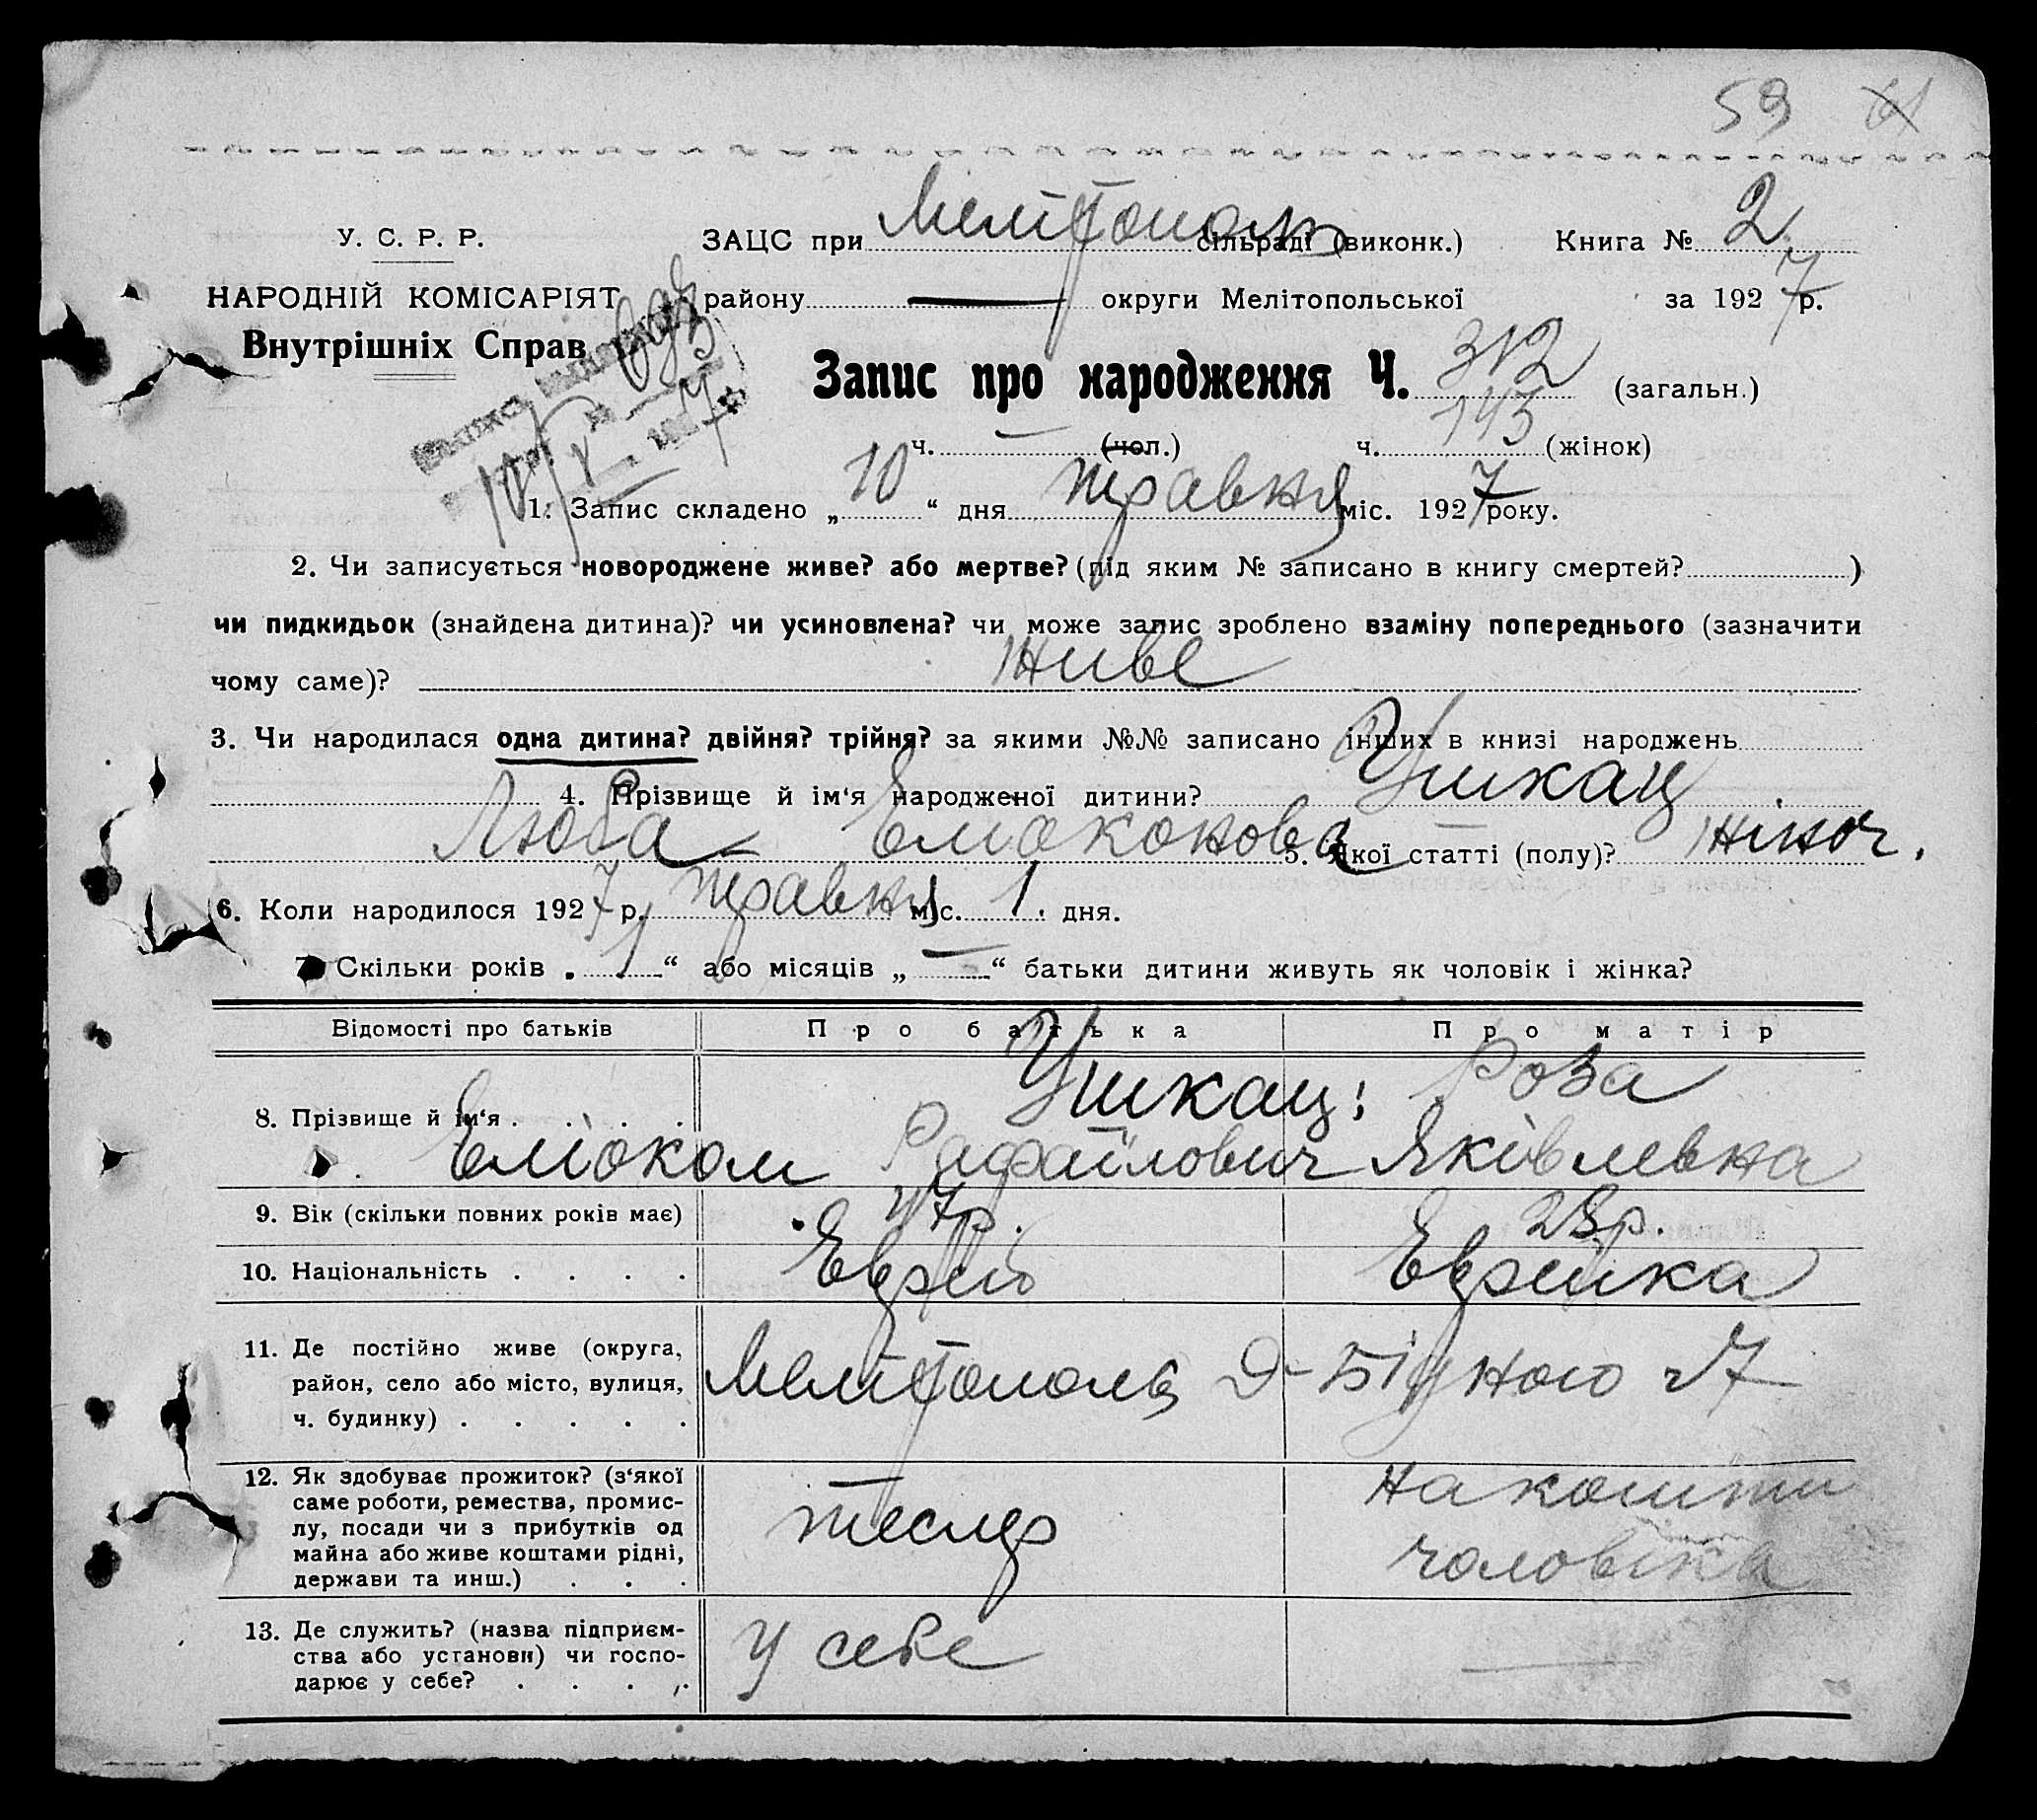 59
У. С. Р. Р. ЗАЦС при Мелітополь сільраді (виконк.) Книга № 2
НАРОДНІЙ КОМІСАРІЯТ району округи Мелітопольської за 1927 р.
Внутрішніх Справ
Запис про народження Ч. 312 (загальн.)
ч. — (чол.) ч. 145 (жінок)
1. Запис складено „ 10 “ дня травня міс. 1927 року.
2. Чи записується новороджене живе? або мертве? (під яким № записано в книгу смертей? )
чи пидкидьок (знайдена дитина)? чи усиновлена? чи може запис зроблено взаміну попереднього (зазначити
чому саме)? живе
3. Чи народилася одна дитина? двійня? трійня? за якими №№ записано інших в книзі народжень
4. Прізвище й ім‘я народженої дитини? Ушкац
Люба – Еліоконова 5. Якої статті (полу)? жіноч.
6. Коли народилося 1927 р. травня міс. 1. дня.
7. Скільки років „ 1 “ або місяців „ — “ батьки дитини живуть як чоловік і жінка?
Відомості про батьків Про батька Про матір
Ушкац: Роза
8. Прізвище й ім‘я . . . .
Рафаїлович Яківлевна
9. Вік (скільки повних років має) 47р. 28р.
10. Національність . . . . Еврей Еврейка
11. Де постійно живе (округа,
район, село або місто, вулиця, Мелітополь Д-Бідного 47
ч. будинку) . . . . .
12. Як здобуває прожиток? (з‘якої на кошти
саме роботи, ремества, промис-
лу, посади чи з прибутків од тесляр
майна або живе коштами рідні, чоловіка
держави та инш.) . . .
13. Де служить? (назва підприєм-
ства або установи) чи госпо- у себе —
дарює у себе? . . . .